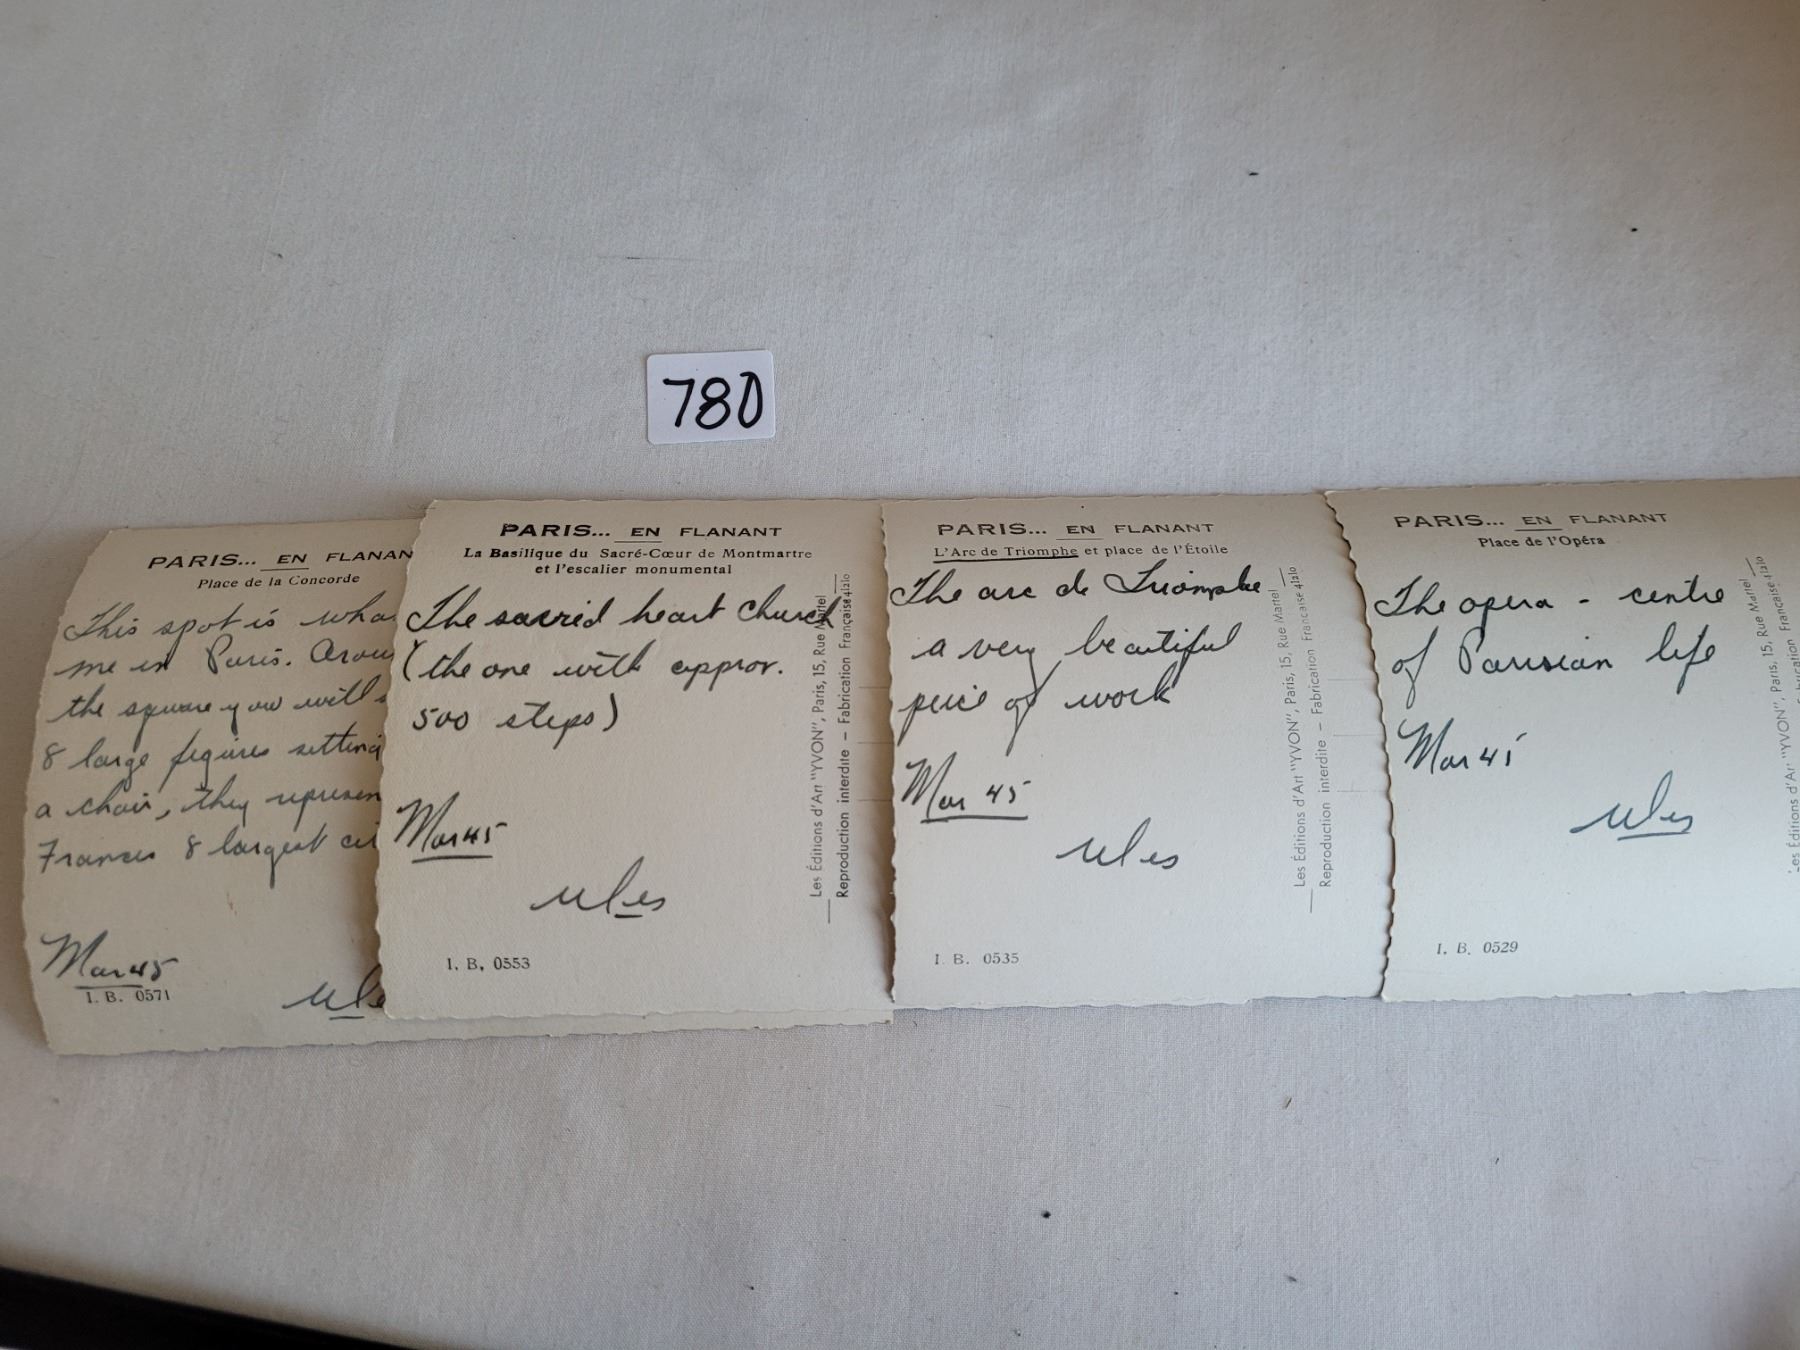 780
PARIS... EN FLANAN
Place de la Concorde
This spot is wha
me in Paris. Arou
the square you will s
8 large figures sitting
a chair, they represen
Frances 8 largest cit
Mar 45
I. B. 0571
PARIS... EN FLANANT
La Basilique du Sacré-Cœur de Montmartre
et l'escalier monumental
The sacrid heart church
(the one with approx.
500 steps)
Mar 45
I. B. 0553
Les Éditions d'Art "YVON", Paris, 15, Rue Martel
Reproduction interdite – Fabrication Française
PARIS... EN FLANANT
L'Arc de Triomphe et place de l'Étoile
The arc de Triomphe
a very beautiful
peice of work
Mar 45
I. B. 0535
Les Éditions d'Art "YVON", Paris, 15, Rue Martel
Reproduction interdite – Fabrication Française
PARIS... EN FLANANT
Place de l'Opéra
The opera - centre
of Parisian life
Mar 45
I. B. 0529
es Éditions d'Art "YVON", Paris, 15, Rue Martel